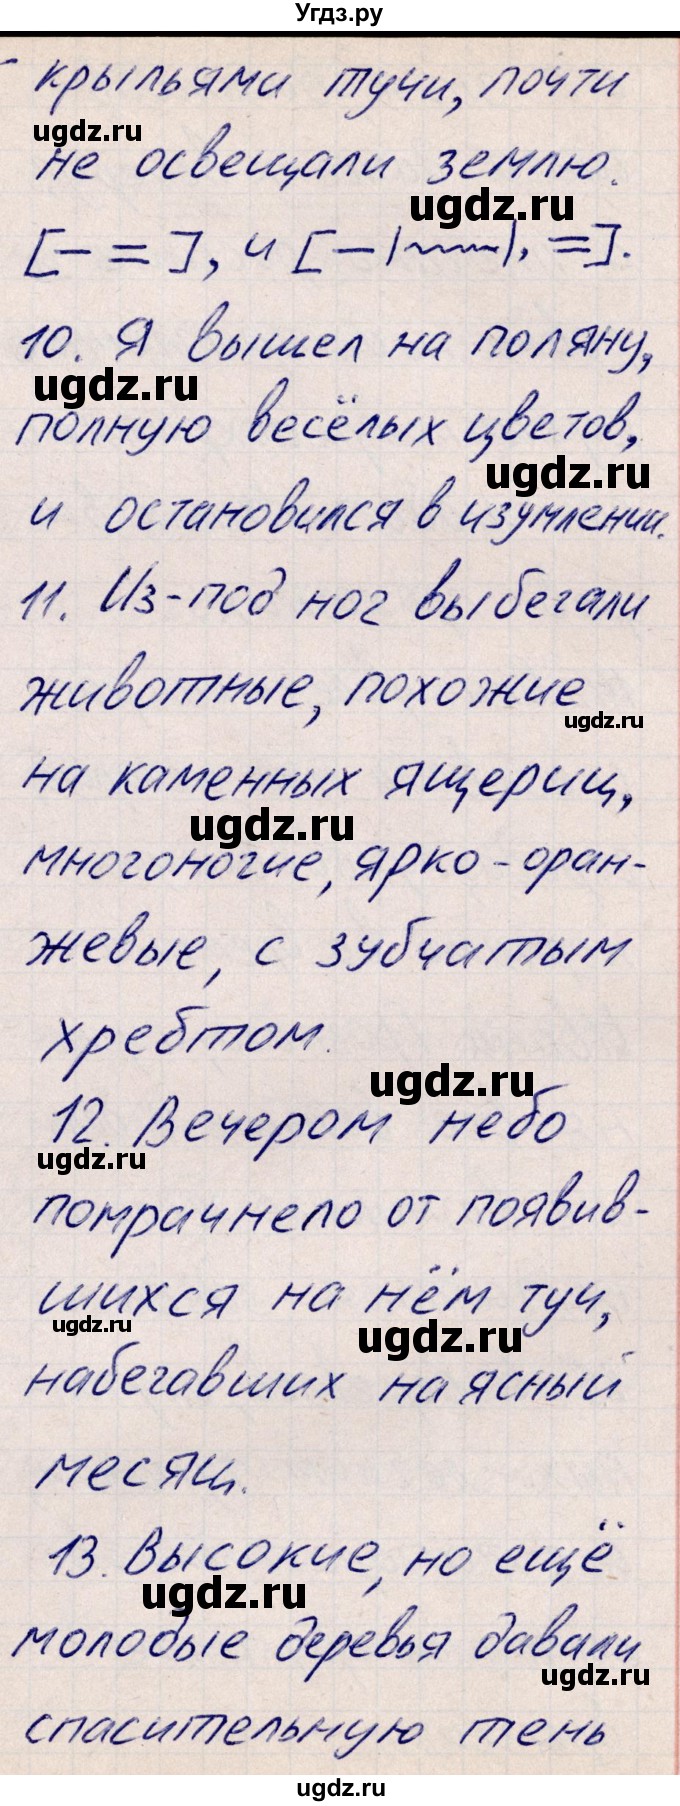 Угдз.ру
крыльями тучи, почти
ugdz.ru
не освещали землю.
ugdz.ru
[— = ], и [—|~~~|, =].
10. Я вышел на поляну,
ugdz.ru
полную весёлых цветов,
ugdz.ru
и остановился в изумлении.
11. Из-под ног выбегали
животные, похожие
ugdz.ru
на каменных ящериц,
ugdz.ru
многоногие, ярко-оран-
жевые, с зубчатым
хребтом.
ugdz.ru
12. Вечером небо
ugdz.ru
помрачнело от появив-
шихся на нём туч,
ugdz.ru
ugdz.ru
набегавших на ясный
месяц.
13. Высокие, но ещё
ugdz.ru
молодые деревья давали
ugdz.ru
спасительную тень
ugdz.ru